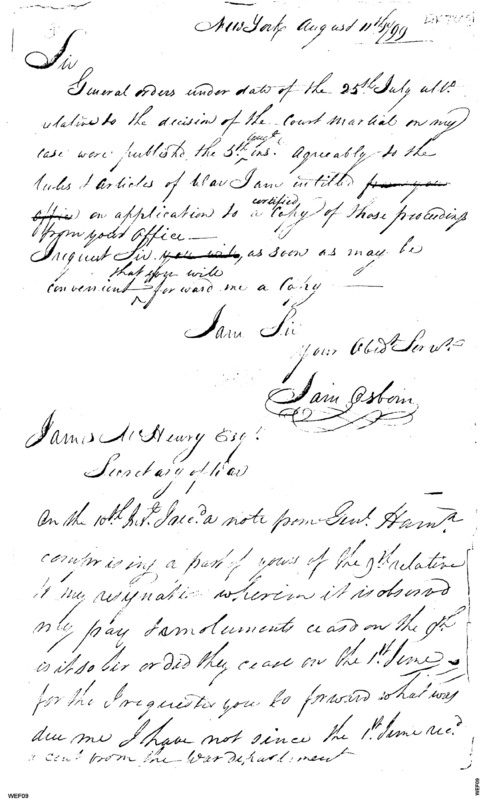 New York August 11th 1799
Sir
General orders under date of the 25th July ulto
relative to the decision of the court martial on my
case were publishd the 5th ins. Agreably to the
rules & articles of War I am intitled from your
office on application to a certified Copy of those proceedings
from your Office—
I request Sir you will, as soon as may be
convenient that you will forward me a Copy —
I am Sir
your Obedt Servt
Sam Osborn
James McHenry Esqr
Secretary of War
On the 10th Int. I rec.d a note from Genl. Hamn
comprising a part of yours of the relative
to my resignation wherein it is observd
my pay & emoluments ceasd on the
is it so Sir or did they cease on the 1st June
for the I requested you to forward what was
due me I have not since the 1st June rec.d
a cent from the War department
WEF09
WEF09